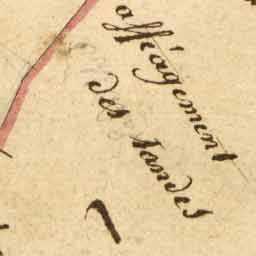 afféagement
des landes